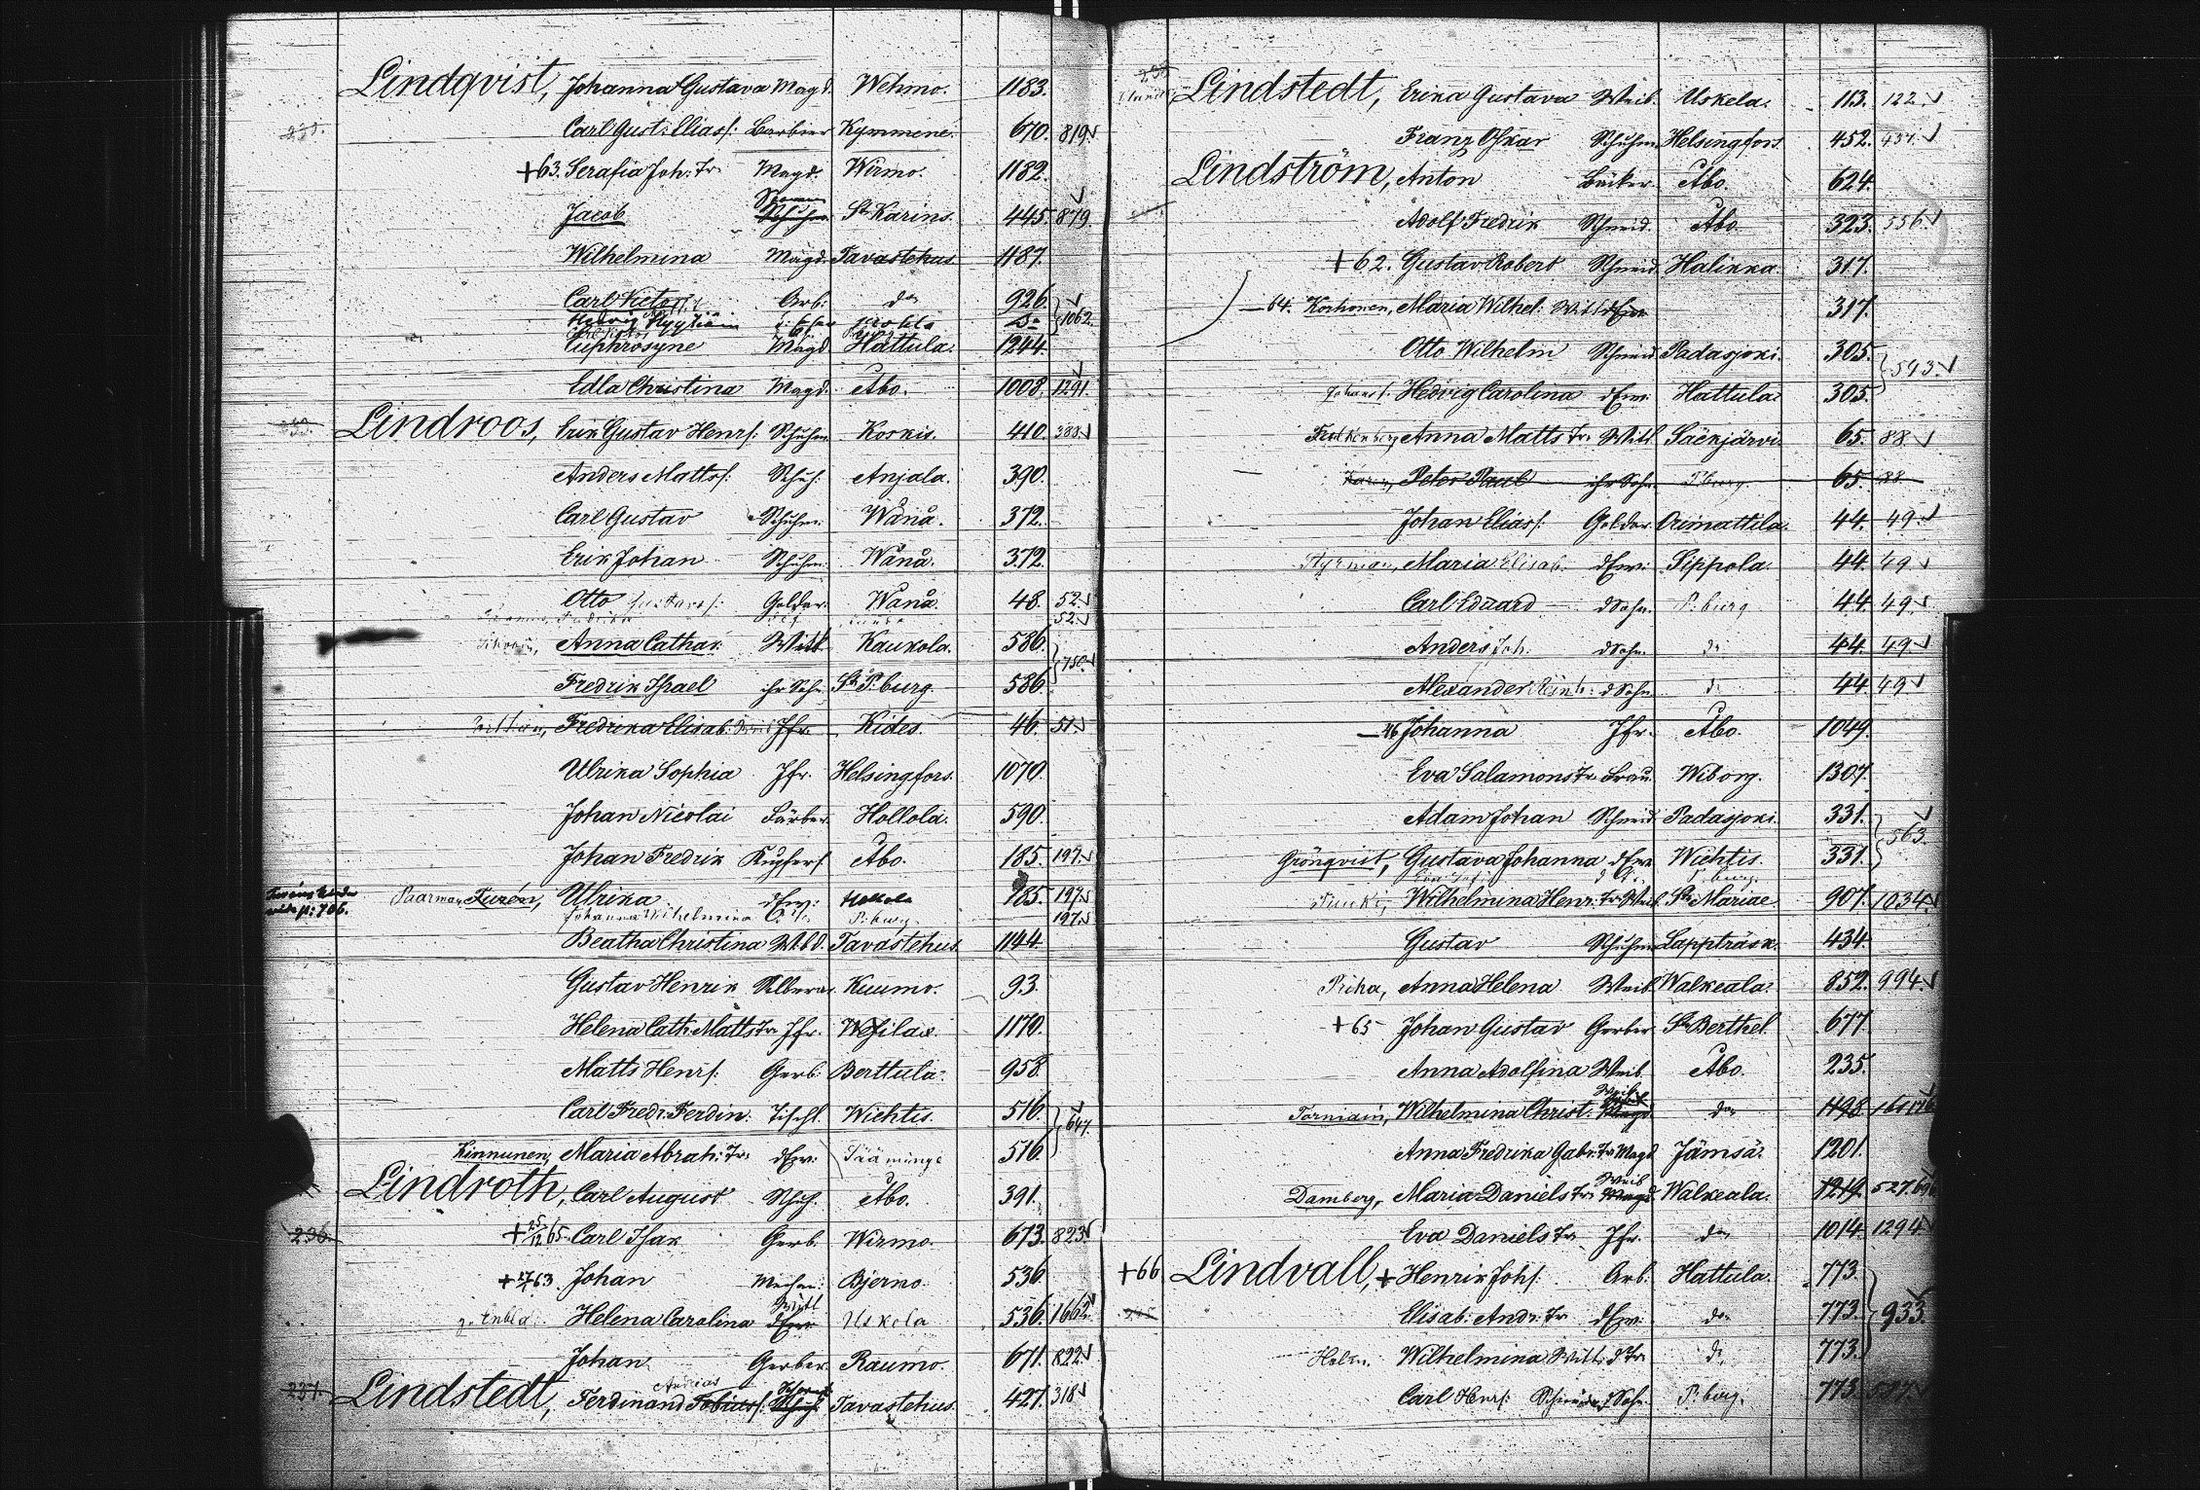 Lindqvist, Johanna Gustava Magd. Wehmo. 1183.
Carl Gust: Eliasf: Barbier Kymmene. 670. 819
+63. Serafia Joh: Tr. Magd. Wirmo. 1182.
Jacob Schuhm. St Karins. 445. 879.
Wilhelmina Magd. Tavastehus. 1187.
Carl Victor Arb: do 926. 1062.
Hedvig Do
Euphrosyne Magd Hattula. 1244.
Edla Christina Magd. Åbo. 1008. 1291.
Lindroos, Erik Gustav Henrf: Schuhm Koskis. 410. 388
Anders Mattsf: Schuh. Anjala. 390.
Carl Gustav Schuhm. Wånå. 372.
Erik Johan Schuhm. Wånå. 372.
Otto Gustavsf: Goldar. Wånå. 48. 52.
52.
Anna Cathar. Witt. Kaukola. 586. 750.
Fredrik Israel ihr Sohn St P:burg. 586.
Fredrika Elisab: Jfr. Kides. 46. 51.
Ulrika Sophia Jfr. Helsingfors. 1070.
Johan Nicolai Färber. Hollola. 590.
Johan Fredrik Kupfers. Åbo. 185. 197.
p: 706. Paarman Turén, Ulrika dErw: 185. 197
Johanna Wilhelmina P:burg. 197
Beatha Christina Tavastehus. 1144.
Gustav Henrik Silberar. Kuumo. 93.
Helena Cath: Matts Tr Jfr. Wesilax. 1170.
Matts Henrf: Gerb: Berttula. 958.
Carl Fredr: Ferdin: Tischl. Wichtis. 516. 647.
Kinnunen, Maria Abrah: Tr. dErw: Sääminge 516.
Lindroth, Carl August Schuh. Åbo. 391.
236. +25/12 65. Carl Isak Gerb. Wirmo. 673. 823
+ 63. Johan Mechan: Bjerno. 536.
Helena Carolina Witt Uskela 536. 1662
Johan Gerber. Raumo. 671. 822
237. Lindstedt, Ferdinand Tobiasf. Andreas Schuh. Tavastehus. 427. 318
Lindstedt, Erika Gustava Weib. Uskela. 113. 122.
Franz Oskar Schuhm. Helsingfors. 452. 457.
Lindström, Anton Bäcker. Åbo. 624.
Adolf Fredrik Schneid. Åbo. 323. 556.
+62. Gustav Robert Schneid. Halikka. 317.
—64. Korhonen, Maria Wilhel: Witt dErw 317.
Otto Wilhelm Schneid. Padasjoki. 305. 543.
Johansf. Hedvig Carolina dErw: Hattula. 305.
Falkenberg Anna Matts Tr. Witt Säckjärvi. 65. 88
Peter Paul ihr Sohn P:burg. 65. 88
Johan Eliasf: Goldar. Orimattila. 44. 49.
Styrman, Maria Elisab. dErw: Sippola. 44. 49
Carl Eduard dSohn. P:burg 44. 49.
Anders Joh. dSohn. do 44. 49
Alexander Reinh: dSohn. do 44. 49
Johanna Jfr. Åbo. 1049.
Eva Salamons Tr Frau. Wiborg. 1307.
Adam Johan Schneid. Padasjoki. 331. 563
Grönqvist, Gustava Johanna dErw. Wichtis. 331.
P:burg.
Wilhelmina Henr: Tr. Weib. St Mariae 907. 1034.
Gustav Schuhm Lappträsk. 434.
Priha, Anna Helena Weib. Walkeala. 852. 994.
+65 Johan Gustav Gerber. St Berthel. 677.
Anna Adolfina Weib. Åbo. 235.
Torniain, Wilhelmina Christ: Magd Weib do 1198.
Anna Fredrika Gabr: Tr Magd Jämsä. 1201.
Damberg, Maria Daniels Tr Magd. Weib Walkeala. 1219. 527.
Eva Daniels Tr Jfr. do 1014. 1294.
+66 Lindvall, + Henrik Johf. Arb. Hattula. 773. 933.
Elisab: Andr: Tr. dErw: do 773.
Wilhelmina Witt. dTr. do 773.
Carl Henrf: dSohn. P:burg. 773. 587.